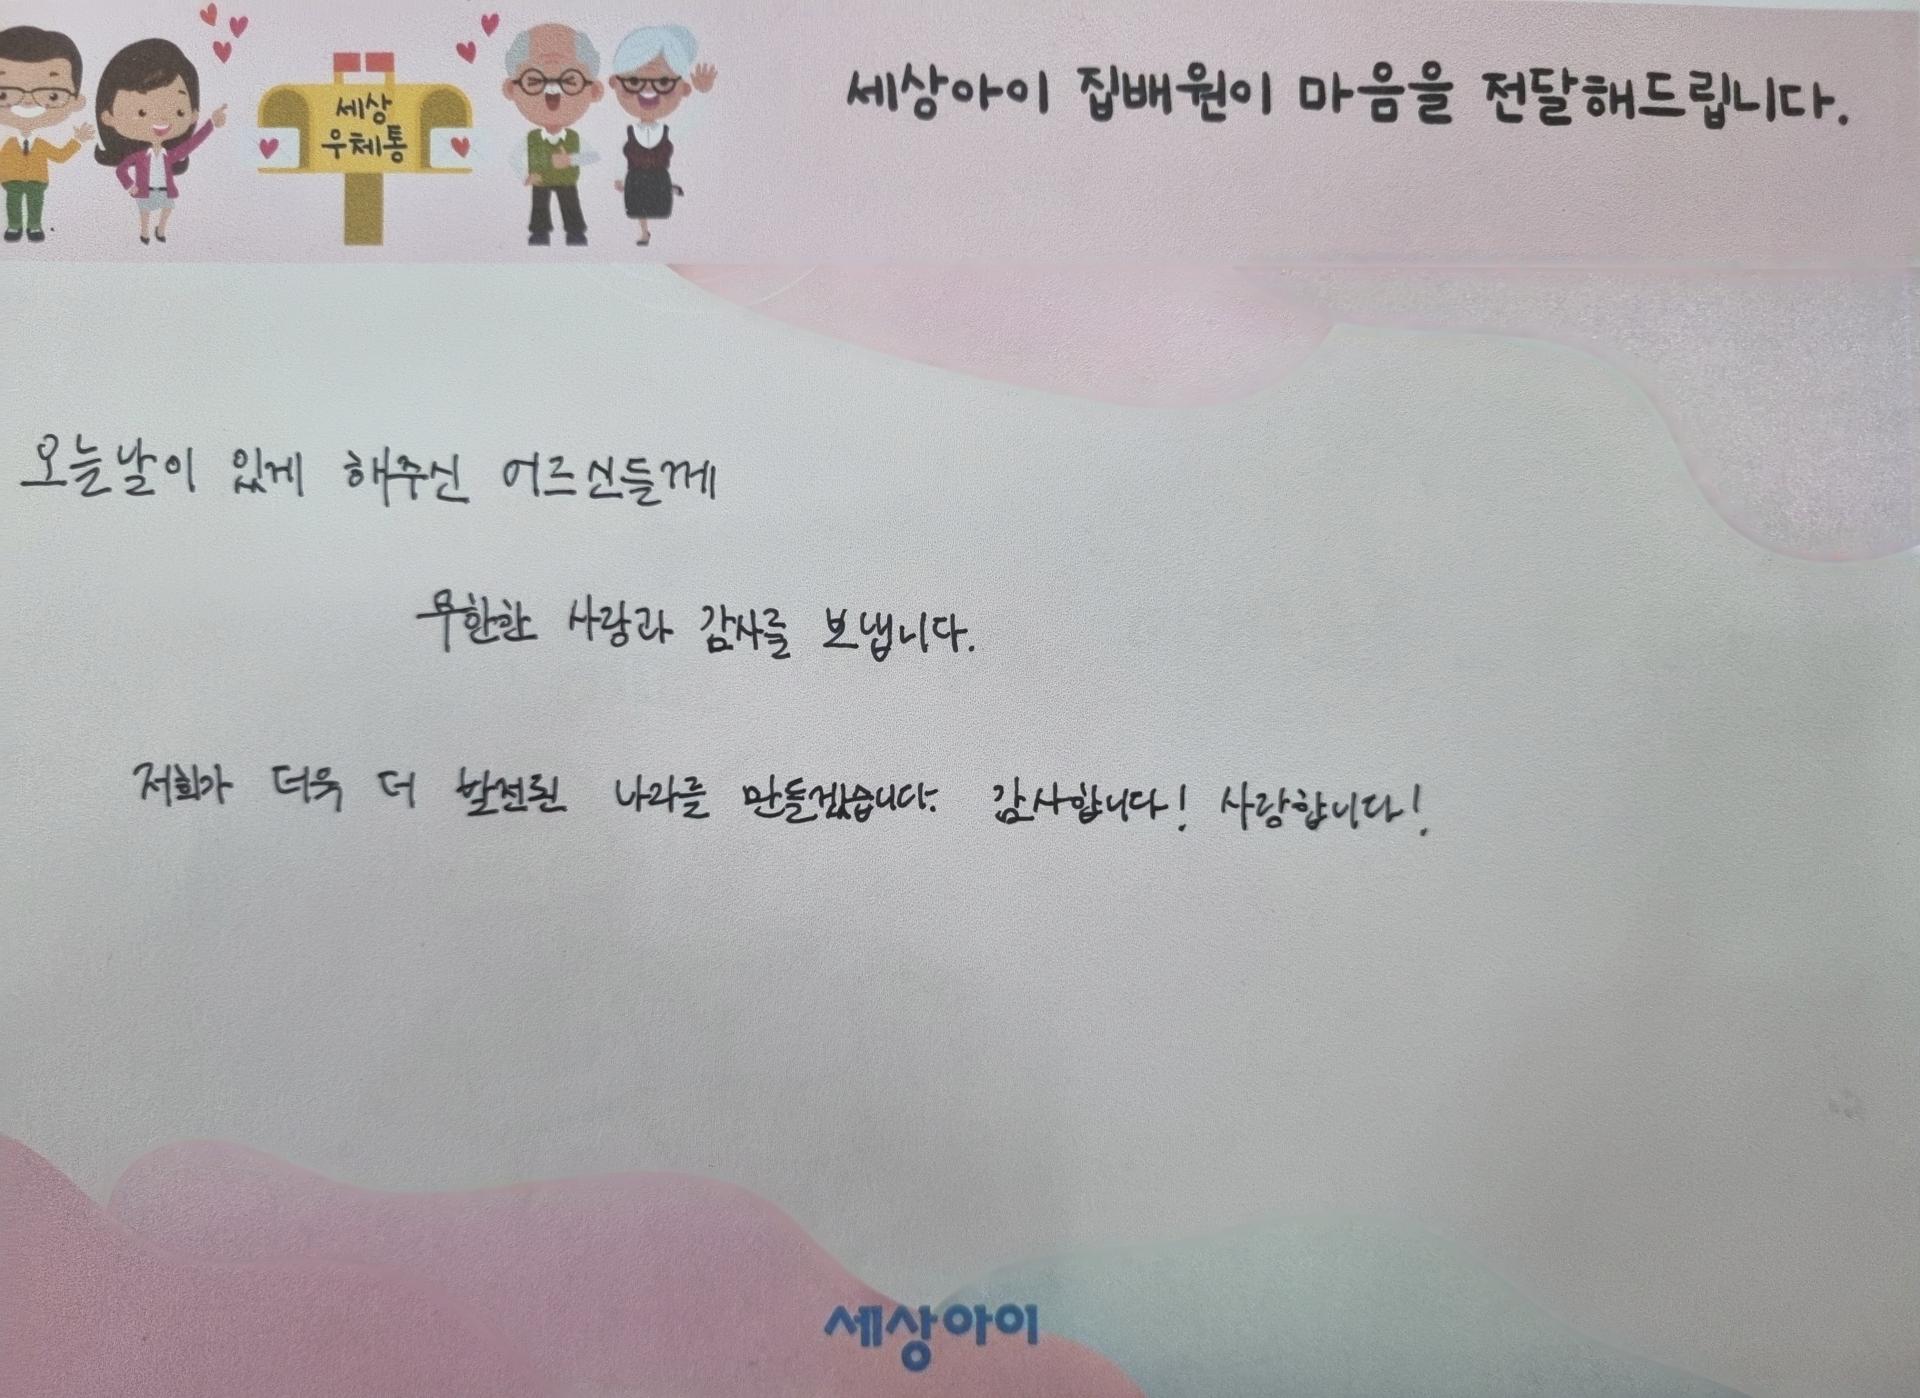 세상
우체통
세상아이 집배원이 마음을 전달해드립니다.
오늘날이 있게 해주신 어르신들께
무한한 사랑과 감사를 보냅니다.
저희가 더욱 더 발전된 나라를 만들겠습니다. 감사합니다! 사랑합니다!
세상아이